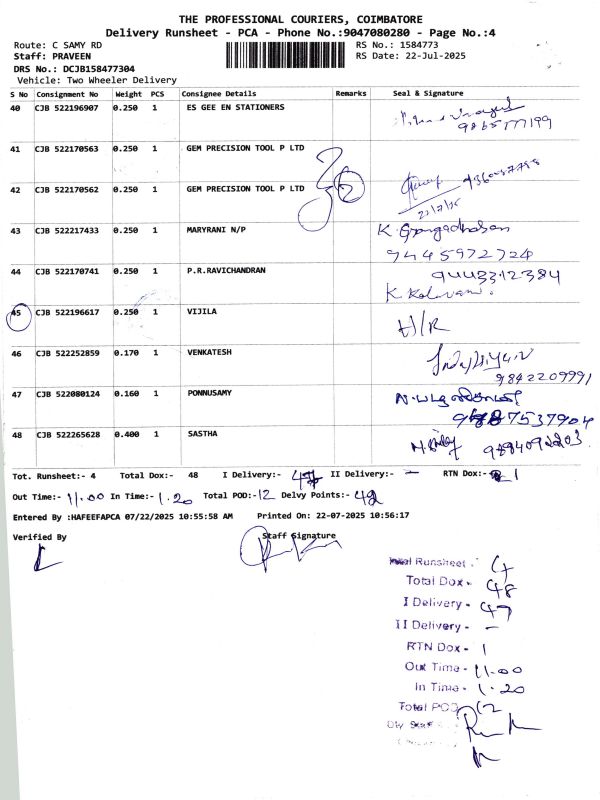 THE PROFESSIONAL COURIERS, COIMBATORE
Delivery Runsheet - PCA - Phone No.:9047080280 - Page No.:4
Route: C SAMY RD RS No.: 1584773
Staff: PRAVEEN RS Date: 22-Jul-2025
DRS No.: DCJB158477304
Vehicle: Two Wheeler Delivery
S No Consignment No Weight PCS Consignee Details Remarks Seal & Signature
40 CJB 522196907 0.250 1 ES GEE EN STATIONERS
9865777199
41 CJB 522170563 0.250 1 GEM PRECISION TOOL P LTD
42 CJB 522170562 0.250 1 GEM PRECISION TOOL P LTD 2
22/7/25
43 CJB 522217433 0.250 1 MARYRANI N/P K. Gangadharan
9445972724
44 CJB 522170741 0.250 1 P.R.RAVICHANDRAN 9443312384
K. Kalavani.
45 CJB 522196617 0.250 1 VIJILA H/R
46 CJB 522252859 0.170 1 VENKATESH
9842209991
47 CJB 522080124 0.160 1 PONNUSAMY
7537904
48 CJB 522265628 0.400 1 SASTHA
Tot. Runsheet:- 4 Total Dox:- 48 I Delivery:- 47 II Delivery:- - RTN Dox:- 1
Out Time:- 11.00 In Time:- 1.20 Total POD:- 12 Delvy Points:- 42
Entered By :HAFEEFAPCA 07/22/2025 10:55:58 AM Printed On: 22-07-2025 10:56:17
Verified By Staff Signature
Total Runsheet - 4
Total Dox - 48
I Delivery - 47
II Delivery - -
RTN Dox - 1
Out Time - 11.00
In Time - 1.20
Total POD 12